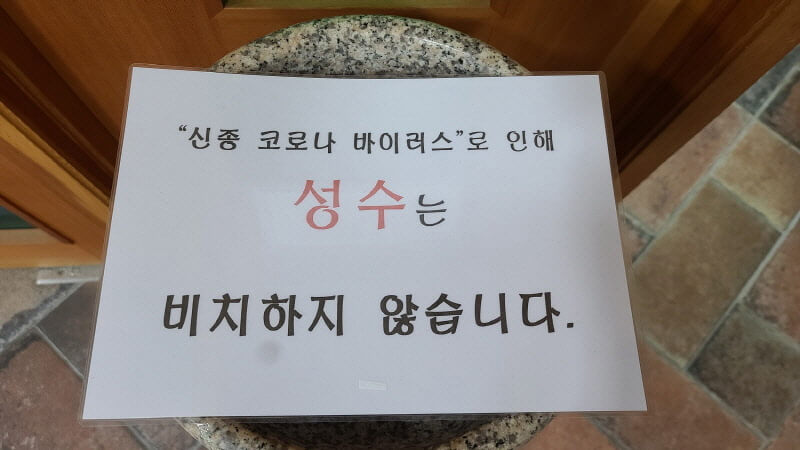 "신종 코로나 바이러스"로 인해
성수는
비치하지 않습니다.